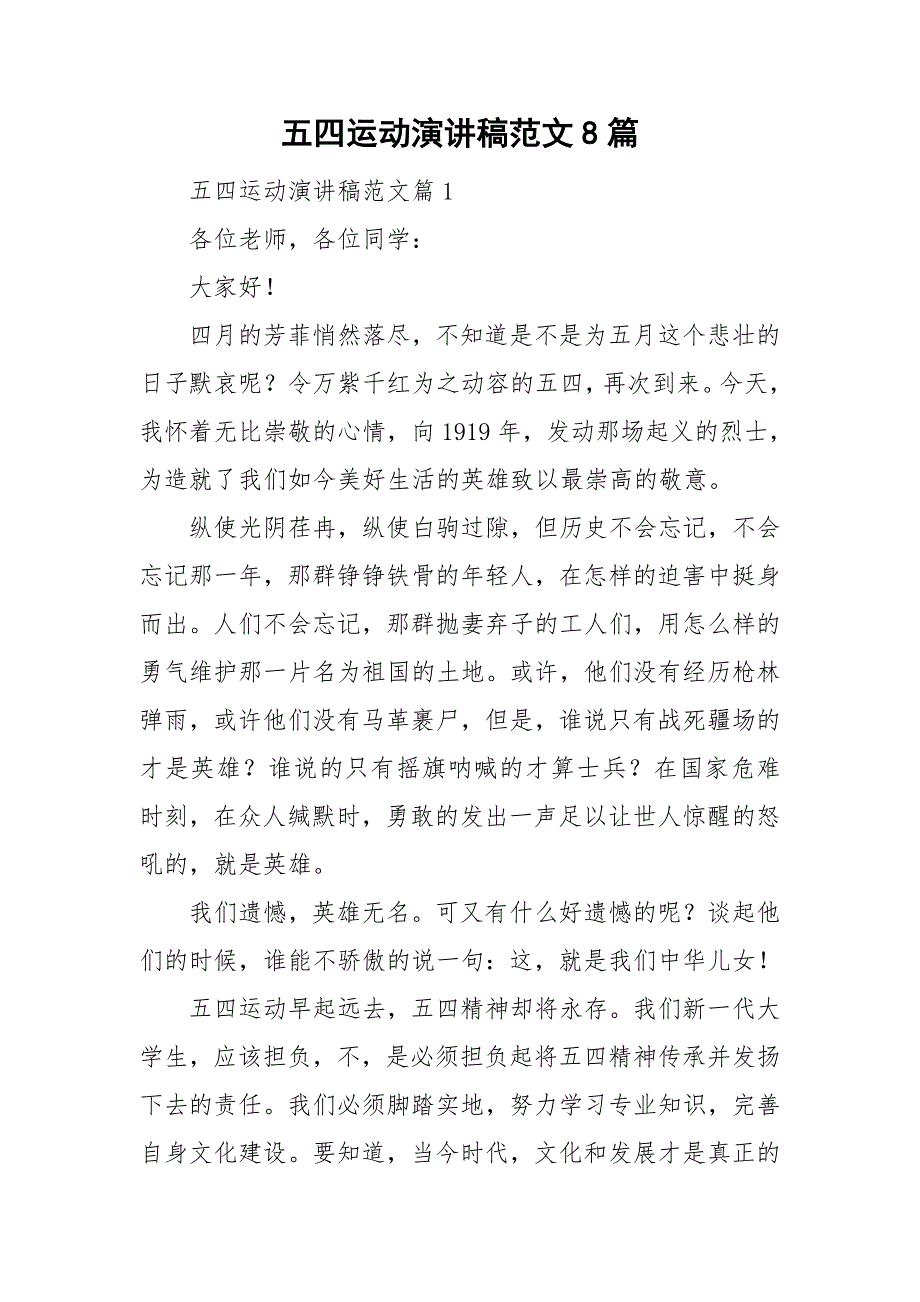 五四运动演讲稿范文8篇
五四运动演讲稿范文篇1
各位老师，各位同学：
大家好！
四月的芳菲悄然落尽，不知道是不是为五月这个悲壮的
日子默哀呢？令万紫千红为之动容的五四，再次到来。今天，
我怀着无比崇敬的心情，向1919年，发动那场起义的烈士，
为造就了我们如今美好生活的英雄致以最崇高的敬意。
纵使光阴荏冉，纵使白驹过隙，但历史不会忘记，不会
忘记那一年，那群铮铮铁骨的年轻人，在怎样的迫害中挺身
而出。人们不会忘记，那群抛妻弃子的工人们，用怎么样的
勇气维护那一片名为祖国的土地。或许，他们没有经历枪林
弹雨，或许他们没有马革裹尸，但是，谁说只有战死疆场的
才是英雄？谁说的只有摇旗呐喊的才算士兵？在国家危难
时刻，在众人缄默时，勇敢的发出一声足以让世人惊醒的怒
吼的，就是英雄。
我们遗憾，英雄无名。可又有什么好遗憾的呢？谈起他
们的时候，谁能不骄傲的说一句：这，就是我们中华儿女！
五四运动早起远去，五四精神却将永存。我们新一代大
学生，应该担负，不，是必须担负起将五四精神传承并发扬
下去的责任。我们必须脚踏实地，努力学习专业知识，完善
自身文化建设。要知道，当今时代，文化和发展才是真正的